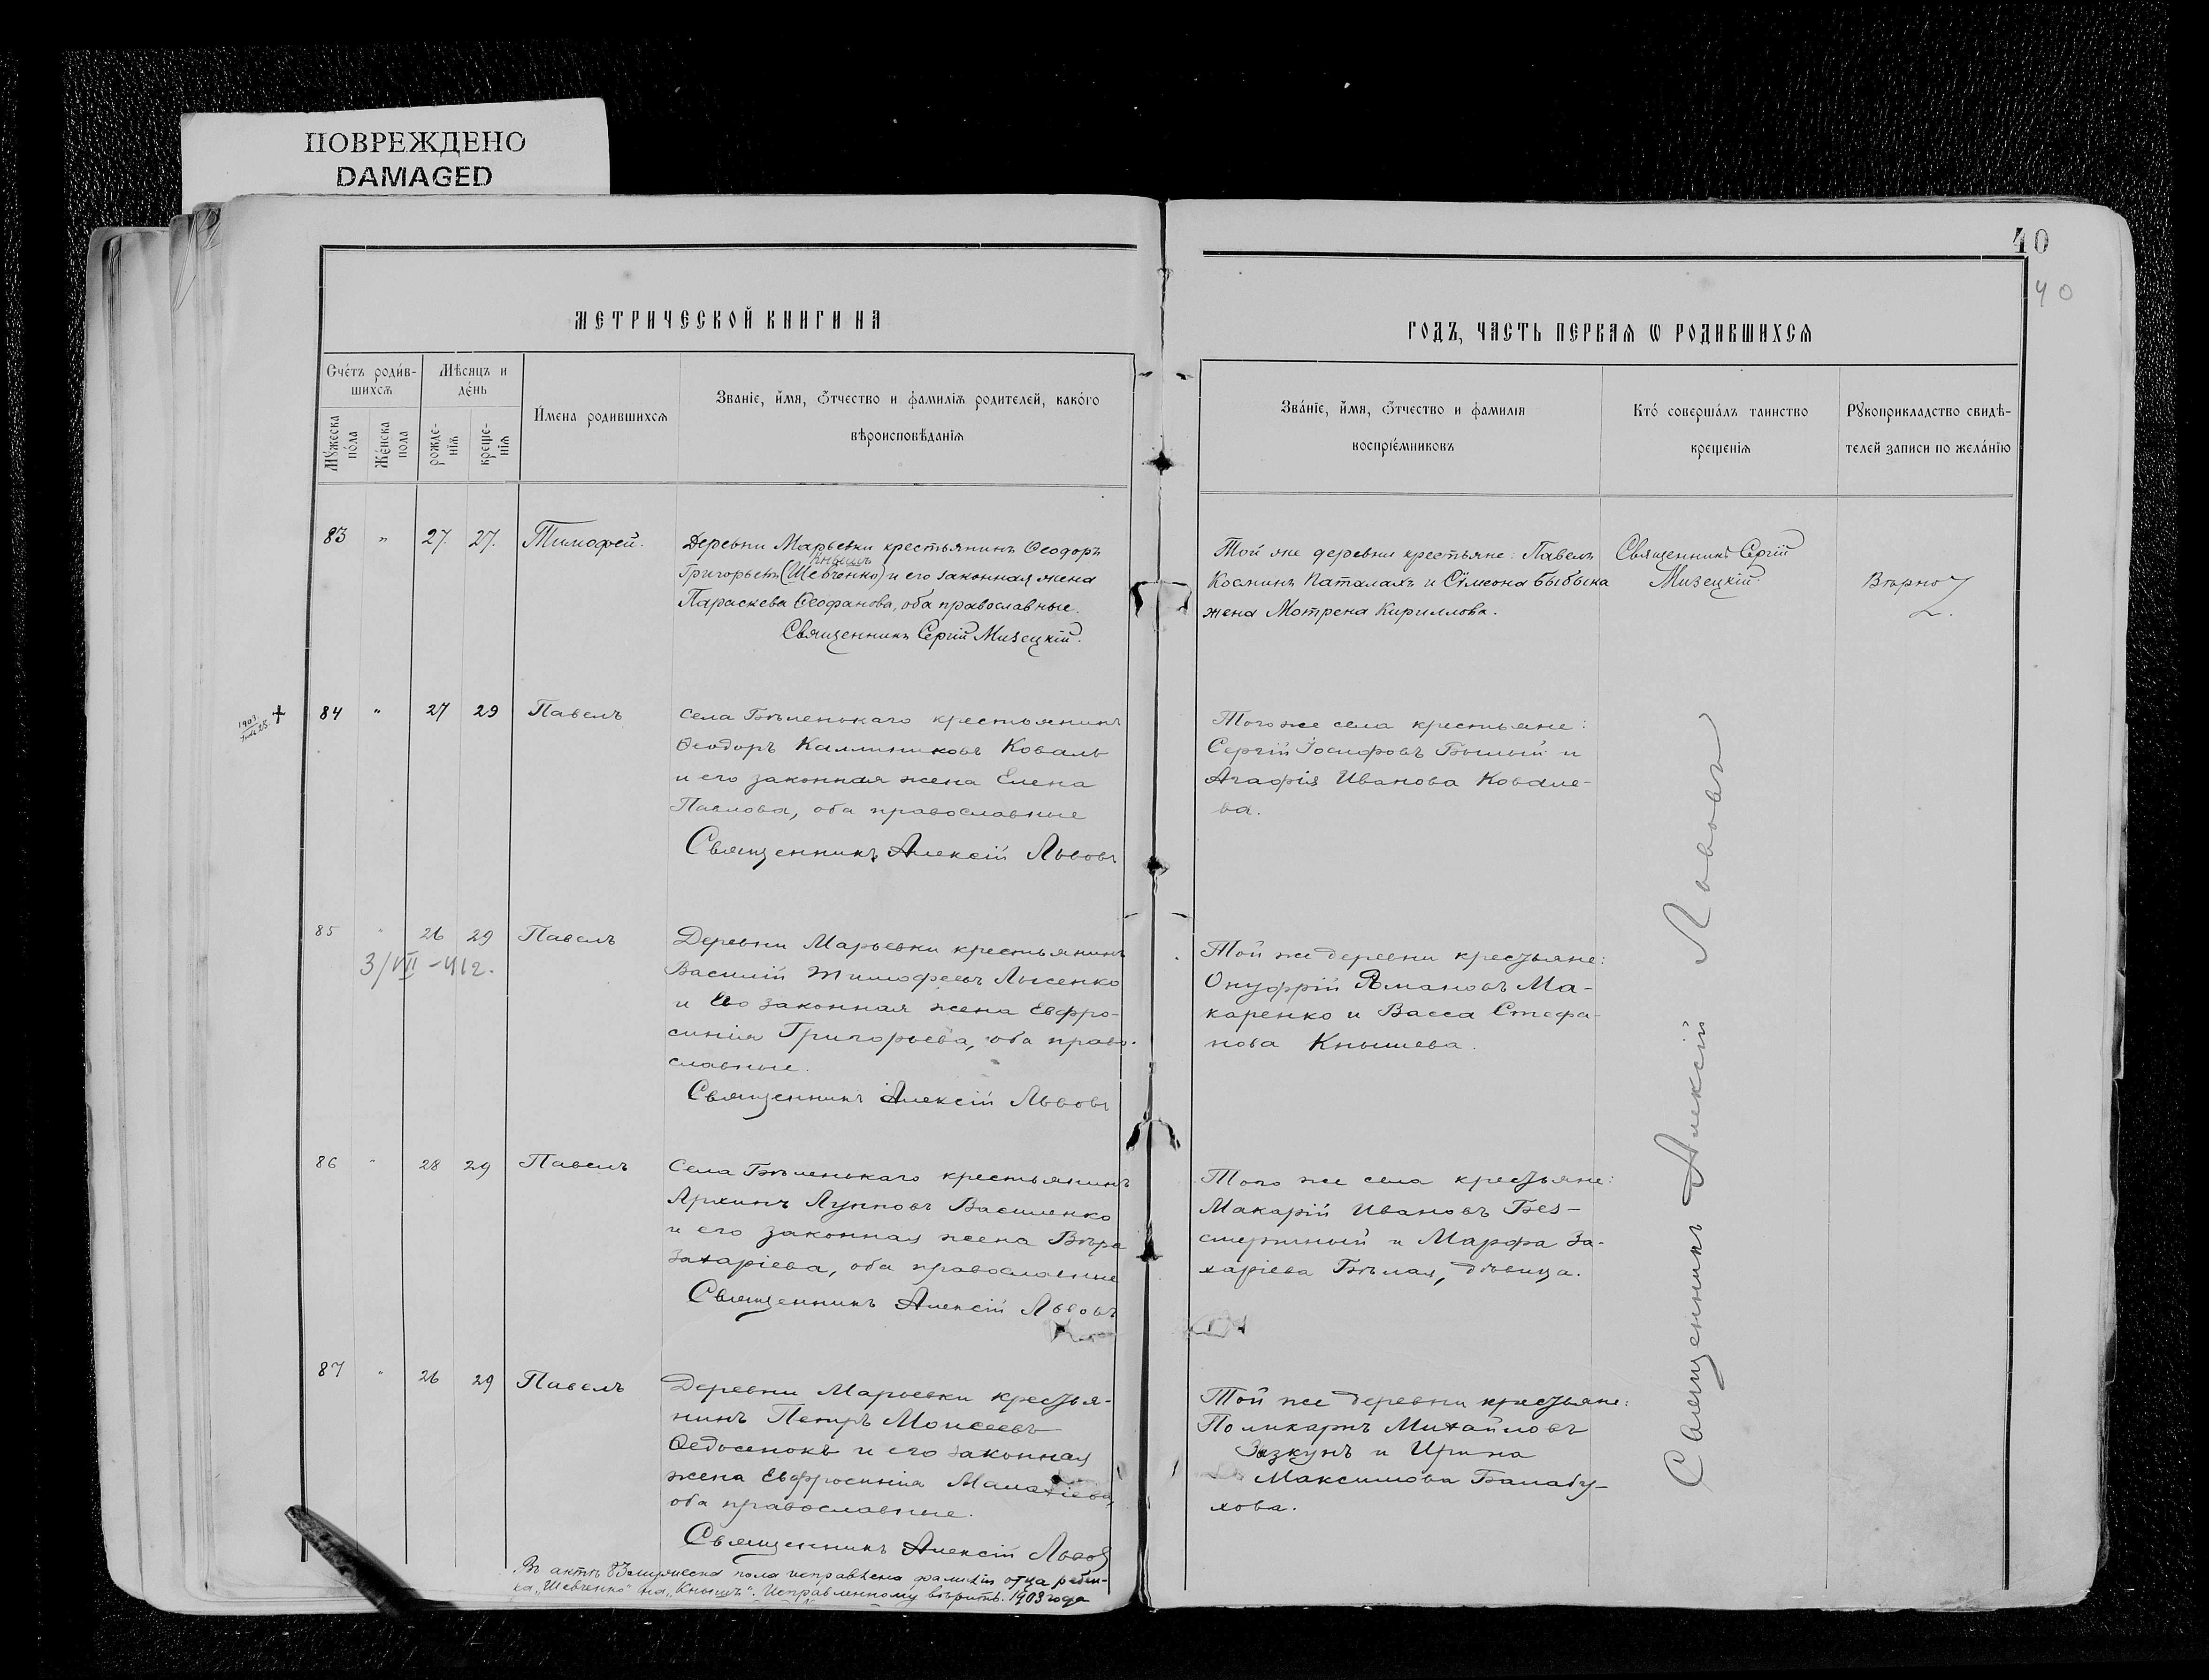 ПОВРЕЖДЕНО
DAMAGED
40
40
МЕТРИЧЕСКОЙ КНИГИ НА
ГОДЪ, ЧАСТЬ ПЕРВАЯ Ѡ РОДИВШИХСѦ
Счетъ родив-
шихсѧ
Мѣсяцъ и
день
Имена родившихсѧ
Званіе, имя, Ѿчество и фамиліѧ родителей, какого
вѣроисповѣданіѧ
Мужеска
пола
Женска
пола
рожде-
ніѧ
креще-
ніѧ
Званіе, имя, Ѿчество и фамилія
воспріемниковъ
Кто совершалъ таинство
крещенія
Рꙋкоприкладство свидѣ-
телей записи по желанію
83 " 27. 27. Тимофей.
Деревни Марьевки крестьянинъ Ѳеодоръ
Кнышъ
Григорьевъ (Шевченко) и его законная жена
Параскева Ѳеофанова, оба православные.
Священникъ Сергій Мизецкій.
Той же деревни крестьяне: Павелъ
Косминъ Паталахъ и Сѵмеона Быбыка
жена Мотрена Кириллова.
Священникъ Сергій
Мизецкій.
Вѣрно
1903
+
84 " 27 29 Павелъ
Села Бѣленькаго крестьянинъ
Ѳеодоръ Каллиниковъ Коваль
и его законная жена Елена
Павлова, оба православные
Священникъ Алексій Львовъ
Того же села крестьяне:
Сергій Іосифовъ Бѣлый и
Агафія Иванова Ковале-
ва.
85 " 26 29 Павелъ
3/VII - 412.
Деревни Марьевки крестьянинъ
Василій Тимофеевъ Лысенко
и его законная жена Евфро-
синія Григорьева, оба право-
славные.
Священникъ Алексій Львовъ
Той же деревни крестьяне:
Онуфрій Романовъ Ма-
каренко и Васса Стефа-
нова Кнышева.
86 " 28 29 Павелъ
Села Бѣленькаго крестьянинъ
Архипъ Лупповъ Василенко
и его законная жена Вѣра
Захаріева, оба православные
Священникъ Алексій Львовъ
Того же села крестьяне:
Макарій Ивановъ Без-
смертный и Марфа За-
харіева Бѣлая, дѣвица.
87 " 26 29 Павелъ
Деревни Марьевки крестья-
нинъ Петръ Моисеевъ
Ѳедосенокъ и его законная
жена Евфросинія Малахіева,
оба православные.
Священникъ Алексій Львовъ
Той же деревни крестьяне:
Поликарпъ Михайловъ
Зазкунъ и Ирина
Максимова Балабу-
хова.
Священникъ Алексій Львовъ
Въ актѣ 83 мужеска пола исправлена фамилія отца ребен-
ка "Шевченко" на "Кнышъ". Исправленному вѣрить. 1903 года